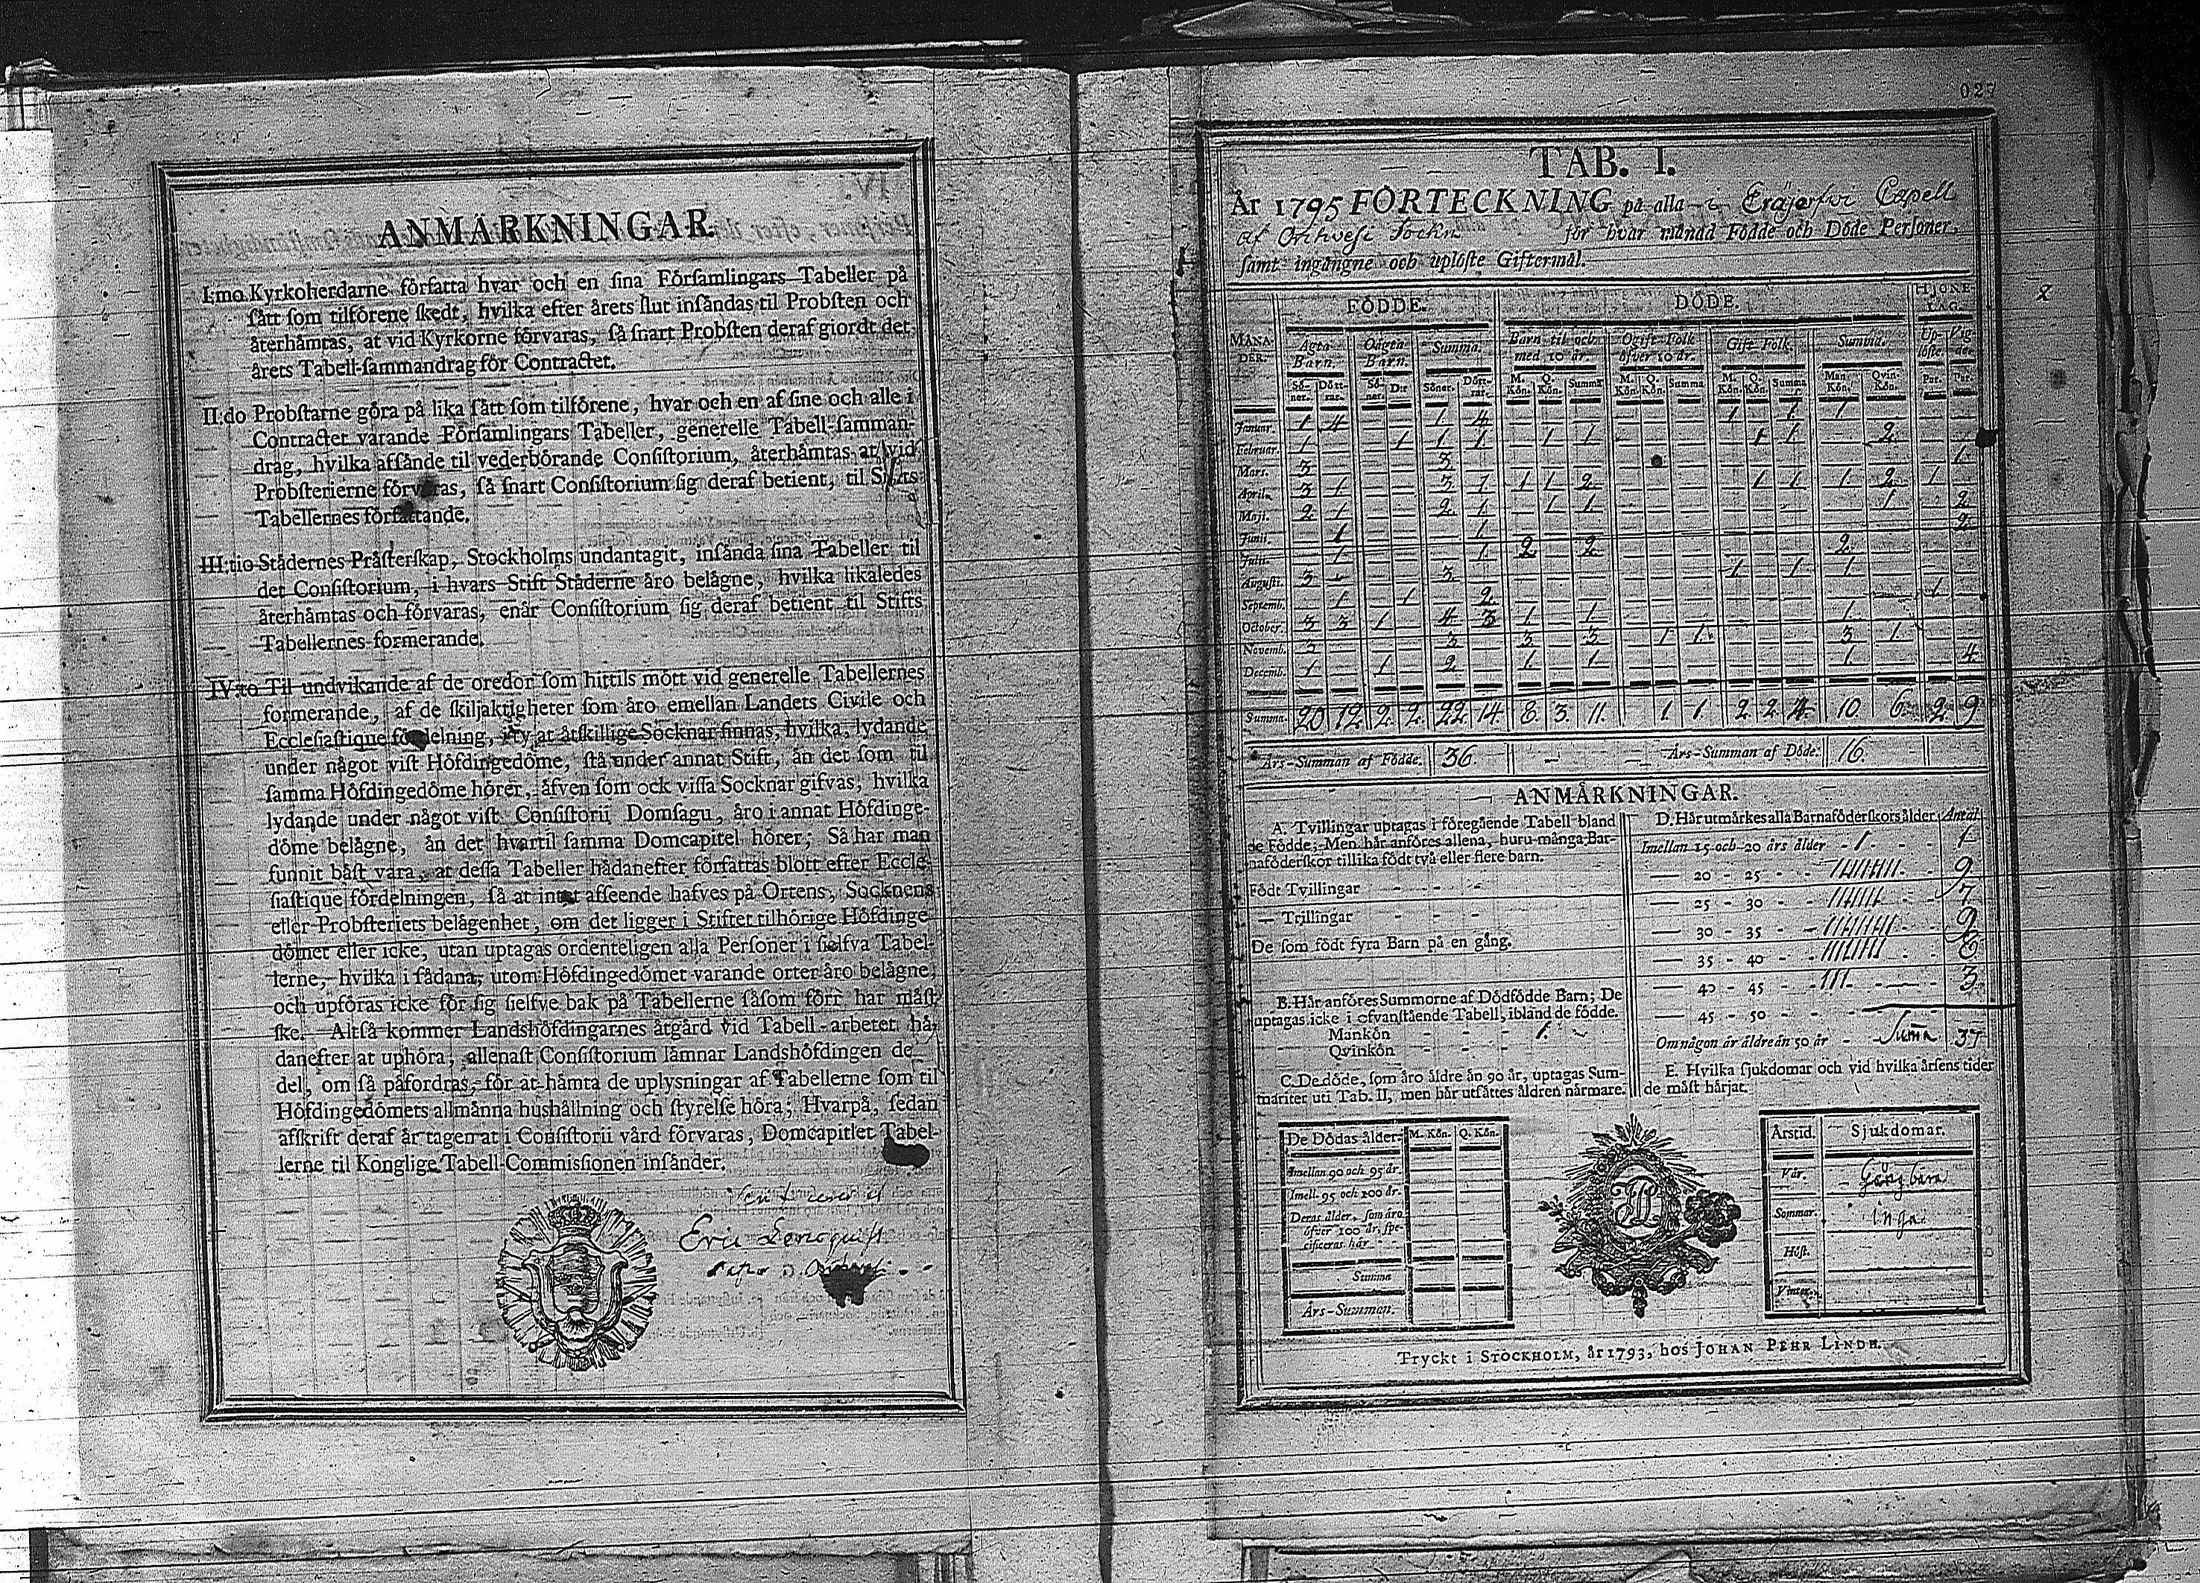 ANMÄRKNINGAR.
I:mo Kyrkoherdarne författa hvar och en sina Församlingars Tabeller på
sätt som tilförene skedt, hvilka efter årets slut insändas til Probsten och
återhämtas, at vid Kyrkorne förvaras, så snart Probsten deraf giordt det
årets Tabell-sammandrag för Contractet.
II:do Probstarne göra på lika sätt som tilförene, hvar och en af sine och alle i
Contractet varande Församlingars Tabeller, generelle Tabell-samman-
drag, hvilka afsände til vederbörande Consistorium, återhämtas at vid
Probsterierne förvaras, så snart Consistorium sig deraf betient, til Stifts
Tabellernes författande.
III:tio Städernes Prästerskap, Stockholms undantagit, insända sina Tabeller til
det Consistorium, i hvars Stift Städerne äro belägne, hvilka likaledes
återhämtas och förvaras, enär Consistorium sig deraf betient til Stifts
Tabellernes formerande.
IV:to Til undvikande af de oredor som hittils mött vid generelle Tabellernes
formerande, af de skiljaktigheter som äro emellan Landets Civile och
Ecclesiastique fördelning, ty at åtskillige Socknar finnas, hvilka, lydande
under något vist Höfdingedöme, stå under annat Stift, än det som til
samma Höfdingedöme hörer, äfven som ock vissa Socknar gifvas, hvilka
lydande under något vist Consistorii Domsagu, äro i annat Höfdinge-
döme belägne, än det hvartil samma Domcapitel hörer; Så har man
funnit bäst vara, at dessa Tabeller hädanefter författas blott efter Eccle-
siastique fördelningen, så at intet afseende hafves på Ortens, Socknens
eller Probsteriets belägenhet, om det ligger i Stiftet tilhörige Höfdinge-
dömet eller icke, utan uptagas ordenteligen alla Personer i sielfva Tabel-
lerne, hvilka i sådana, utom Höfdingedömet varande orter äro belägne,
och upföras icke för sig sielfve bak på Tabellerne såsom förr har måst
ske. Altså kommer Landshöfdingarnes åtgärd vid Tabell-arbetet hä-
danefter at uphöra, allenast Consistorium lämnar Landshöfdingen de
del, om så påfordras, för at hämta de uplysningar af Tabellerne som til
Höfdingedömets allmänna hushållning och styrelse höra; Hvarpå, sedan
afskrift deraf är tagen at i Consistorii vård förvaras, Domcapitlet Tabel-
lerne til Konglige Tabell-Commissionen insänder.
Eric Lencquist
027
TAB. I.
År 1795 FÖRTECKNING på alla i Eräjerfvi Capell
af Orihvesi Sockn för hvar månad Födde och Döde Personer,
samt ingångne och uplöste Giftermål.
FÖDDE. DÖDE. HJONELAG.
MÅNADER. Ägta Barn. Oägta Barn. Summa. Barn til och med 10 år. Ogift Folk öfver 10 år. Gift Folk. Summa. Uplöste Vigde
Söner. Döttrar. Söner. D:r Söner. Döttrar. M. Kön. Q. Kön. Summa M. Kön. Q. Kön. Summa M. Kön. Q. Kön. Summa Man Kön. Qvin-Kön. Par. Par.
Januar. 1 4 — — 1 4 — — — — — — 1 — 1 1 — — —
Februar. 1 — — 1 1 1 — 1 1 — — — — 1 1 — 2 — —
Mars. 3 — — — 3 — — — — — — — — — — — — — 1
April. 3 1 — — 3 1 1 1 2 — — — — 1 1 1 2 1 —
Maji. 2 1 — — 2 1 — 1 1 — — — — — — — 1 — 2
Junii. — 1 — — — 1 — — — — — — — — — — — — 2
Julii. — 1 — — — 1 2 — 2 — — — — — — 2 — — —
Augusti. 3 — — — 3 — — — — — — — 1 — 1 1 — — —
Septemb. — 1 — 1 — 2 — — — — — — — — — — — 1 —
October. 3 3 1 — 4 3 1 — 1 — — — — — — 1 — — —
Novemb. 3 — — — 3 — 3 — 3 — 1 1 — — — 3 1 — —
Decemb. 1 — 1 — 2 — 1 — 1 — — — — — — 1 — — 4
Summa. 20 12 2 2 22 14 8 3 11 1 1 2 2 4 10 6 2 9
Års-Summan af Födde. 36 Års-Summan af Döde. 16.
ANMÄRKNINGAR.
A. Tvillingar uptagas i föregående Tabell bland
de Födde; Men här anföres allena, huru många Bar-
naföderskor tillika födt två eller flere barn.
Födt Tvillingar - - -
— Trillingar - - -
De som födt fyra Barn på en gång.
B. Här anföres Summorne af Dödfödde Barn; De
uptagas icke i ofvanstående Tabell, ibland de födde.
Mankön - - - 1.
Qvinkön - - -
C. De döde, som äro äldre än 90 år, uptagas Sum-
mariter uti Tab. II, men här utsättes åldren närmare.
D. Här utmärkes alla Barnaföderskors ålder. Antal.
Imellan 15 och 20 års ålder - 1 - 1
— 20 - 25 - 9
— 25 - 30 - 7
— 30 - 35 - 9
— 35 - 40 - 8
— 40 - 45 - 111 - 3
— 45 - 50 - -
Om någon är äldre än 50 år - Suma 37
E. Hvilka sjukdomar och vid hvilka årsens tider
de mäst härjat.
De Dödas ålder. M. Kön. Q. Kön.
Imellan 90 och 95 år.
Imell. 95 och 100 år.
Deras ålder, som äro
öfver 100 år, spe-
cificeras här
Summa
Års-Summan.
Årstid. Sjukdomar.
Vår.
Sommar. inga
Höst.
Vinter.
Tryckt i STOCKHOLM, år 1793, hos JOHAN PEHR LINDH.